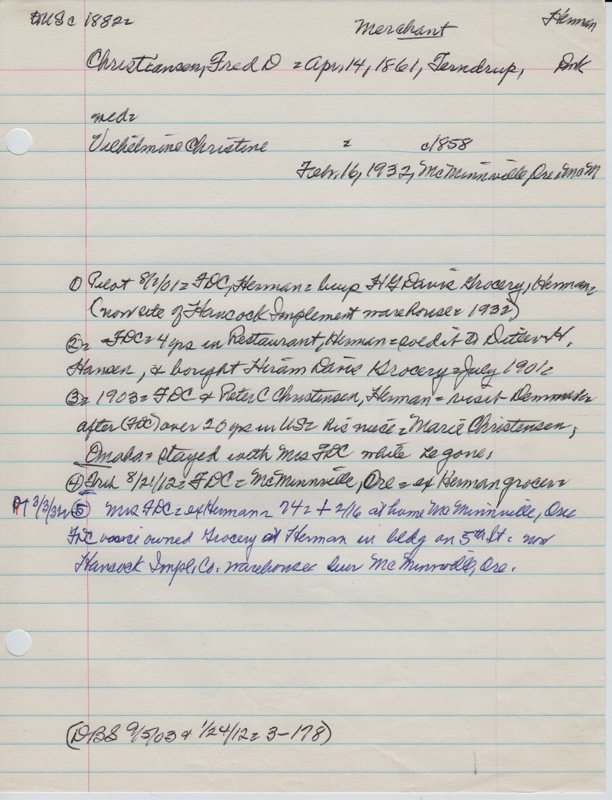 imsc 1882= Merchant Herman
Christiansen, Fred D = Apr. 14, 1861, Terndrup, Dmk
med=
Vilhelmine Christine = c1858
Feb. 16, 1932, McMinnville, Ore = McM
1) Pilot 8/2/01= FDC, Herman= buys H G Davis Grocery, Herman=
(now site of Hancock Implement warehouse= 1932)
2)= FDC= 4 yrs in Restaurant, Herman= sold it to Detlev H.
Hansen, & bought Hiram Davis Grocery= July 1901=
3)= 1903= FDC & Peter C Christensen, Herman= visit Denmark
after (FDC) over 20 yrs in US= his niece= Marie Christensen,
Omaha= stayed with Mrs FDC while he gone,
4) 8/21/12= FDC= McMinnville, Ore= ex Herman grocer=
PT 3/3/32= 5) Mrs FDC= ex Herman= 74= + 2/16 at home McMinnville, Ore
FDC once owned Grocery at Herman in bldg on 5th St= now
Hancock Impl. Co. warehouse= bur McMinnville, Ore.
(DBS 9/5/03 & 1/24/12= 3-178)